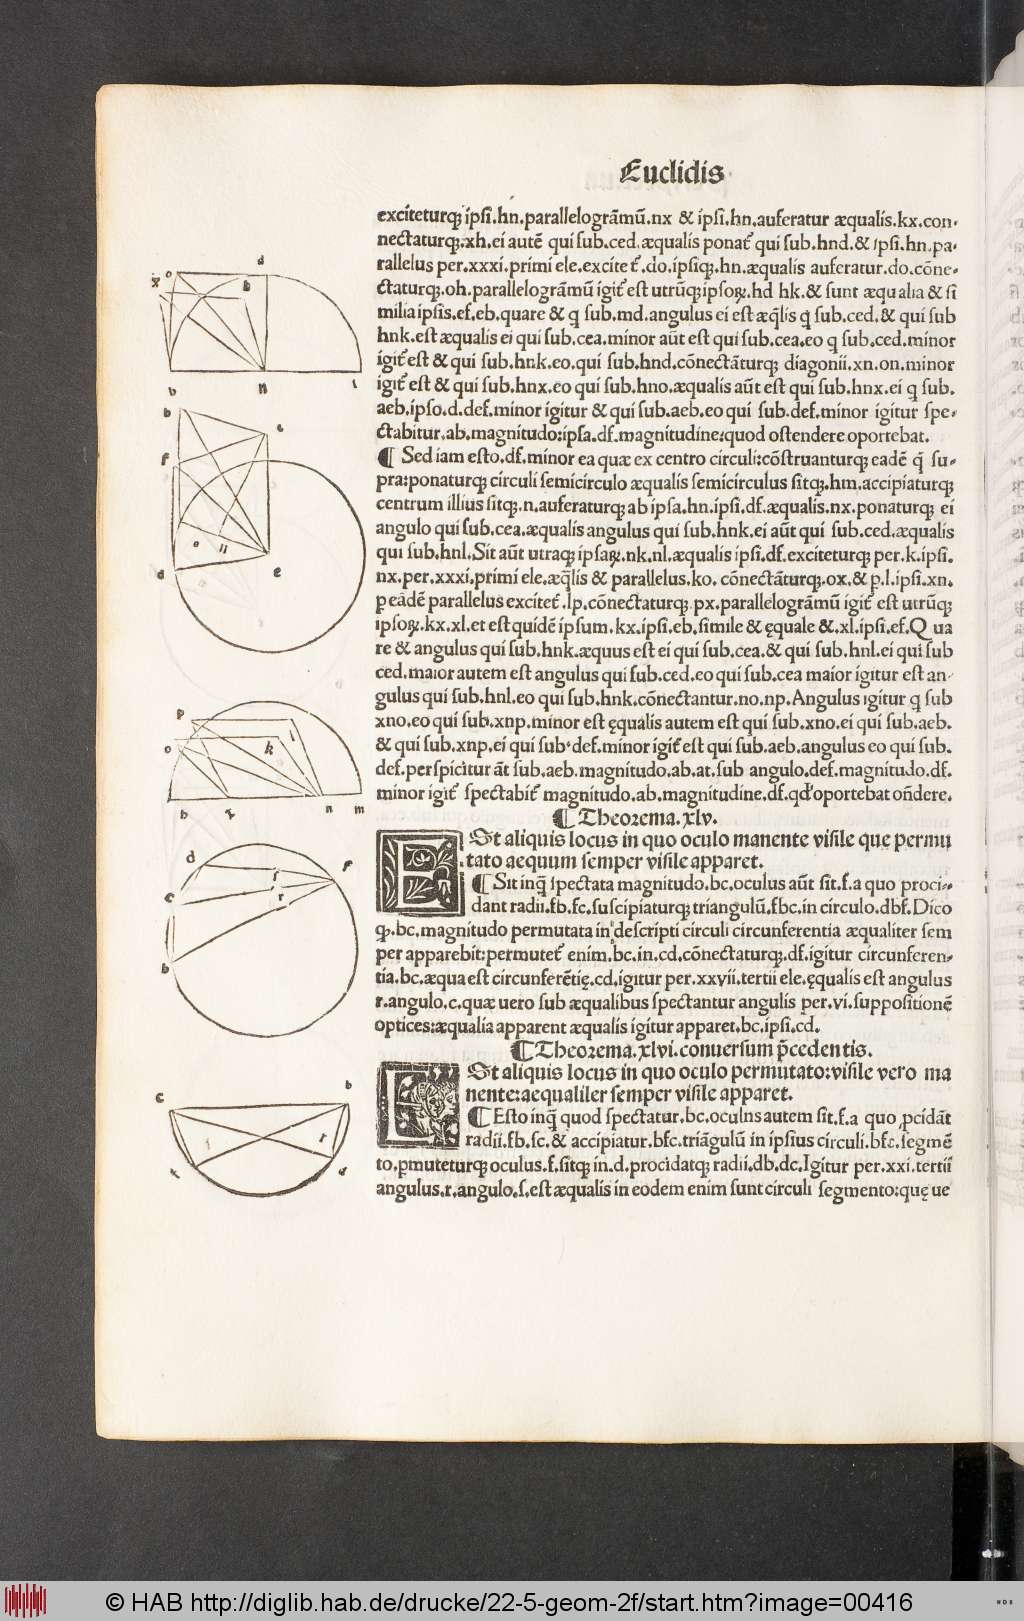 Euclidis
exciteturqꝫ ipsi.hn.parallelogrãmũ.nx & ipsi.hn.auferatur æqualis.kx.con-
nectaturqꝫ.xh.ei autẽ qui sub.ced.æqualis ponat̃ qui sub.hnd.& ipsi.hn.pa-
rallelus per.xxxi.primi ele.excitet̃.do.ipsiqꝫ.hn.æqualis auferatur.do.cõne-
ctaturqꝫ.oh.parallelogrãmũ igit̃ est utrũqꝫ ipsoꝝ.hd hk.& sunt æqualia & si
milia ipsis.ef.eb.quare & q̃ sub.md.angulus ei est æq̃lis q̃ sub.ced.& qui sub
hnk.est æqualis ei qui sub.cea.minor aũt est qui sub.cea.eo q̃ sub.ced.minor
igit̃ est & qui sub.hnk.eo.qui sub.hnd.cõnectãturqꝫ diagonii.xn.on.minor
igit̃ est & qui sub.hnx.eo qui sub.hno.æqualis aũt est qui sub.hnx.ei q̃ sub.
aeb.ipso.d.def.minor igitur & qui sub.aeb.eo qui sub.def.minor igitur spe-
ctabitur.ab.magnitudo:ipsa.df.magnitudine:quod ostendere oportebat.
¶ Sed iam esto.df.minor ea quæ ex centro circuli:cõstruanturqꝫ eadẽ q̃ su-
pra:ponaturqꝫ circuli semicirculo æqualis semicirculus sitqꝫ.hm.accipiaturqꝫ
centrum illius sitqꝫ.n.auferaturqꝫ ab ipsa.hn.ipsi.df.æqualis.nx.ponaturqꝫ ei
angulo qui sub.cea.æqualis angulus qui sub.hnk.ei aũt qui sub.ced.æqualis
qui sub.hnl.Sit aũt utraqꝫ ipsaꝝ.nk.nl.æqualis ipsi.df.exciteturqꝫ per.k.ipsi.
nx.per.xxxi.primi ele.æq̃lis & parallelus.ko. cõnectãturqꝫ.ox.& ꝑ.l.ipsi.xn.
ꝑ eãdẽ parallelus excitet̃.lp.cõnectaturqꝫ px.parallelogrãmũ igit̃ est utrũqꝫ
ipsoꝝ.kx.xl.et est quidẽ ipsum.kx.ipsi.eb.simile & ęquale &.xl.ipsi.ef.Q ua
re & angulus qui sub.hnk.æquus est ei qui sub.cea.& qui sub.hnl.ei qui sub
ced.maior autem est angulus qui sub.ced.eo qui sub.cea maior igitur est an-
gulus qui sub.hnl.eo qui sub.hnk.cõnectantur.no.np.Angulus igitur q̃ sub
xno.eo qui sub.xnp.minor est ęqualis autem est qui sub.xno.ei qui sub.aeb.
& qui sub.xnp.ei qui sub.def.minor igit̃ est qui sub.aeb.angulus eo qui sub.
def.perspicitur ãt sub.aeb.magnitudo.ab.at.sub angulo.def.magnitudo.df.
minor igit̃ spectabit̃ magnitudo.ab.magnitudine.df.qd̃ oportebat oñdere.
¶ Theorema.xlv.
ESt aliquis locus in quo oculo manente visile que permu
tato aequum semper visile apparet.
¶ Sit inq̃ spectata magnitudo.bc.oculus aũt sit.f.a quo proci-
dant radii.fb.fc.suscipiaturqꝫ triangulũ.fbc.in circulo.dbf.Dico
qꝫ.bc.magnitudo permutata in descripti circuli circunferentia æqualiter sem
per apparebit:permutet̃ enim.bc.in.cd.cõnectaturqꝫ.df.igitur circunferen-
tia.bc.æqua est circunferẽtię.cd.igitur per.xxvii.tertii ele.ęqualis est angulus
r.angulo.c.quæ uero sub æqualibus spectantur angulis per.vi.suppositionẽ
optices:æqualia apparent æqualis igitur apparet.bc.ipsi.cd.
¶ Theorema.xlvi.conversum p̃cedentis.
ESt aliquis locus in quo oculo permutato:visile vero ma
nente:aequaliler semper visile apparet.
¶ Esto inq̃ quod spectatur.bc.oculns autem sit.f.a quo ꝓcidãt
radii.fb.fc.& accipiatur.bfc.triãgulũ in ipsius circuli.bfc.segmẽ
to.ꝑmuteturqꝫ oculus.f.sitqꝫ in.d.procidatqꝫ radii.db.dc.Igitur per.xxi.tertii
angulus.r.angulo.s.est æqualis in eodem enim sunt circuli segmento:quę ue
o d
x h
b n l
b c
f
o
d e
p l
o k
h x n m
d f
s
c r
b
c b
s r
f d
© HAB http://diglib.hab.de/drucke/22-5-geom-2f/start.htm?image=00416